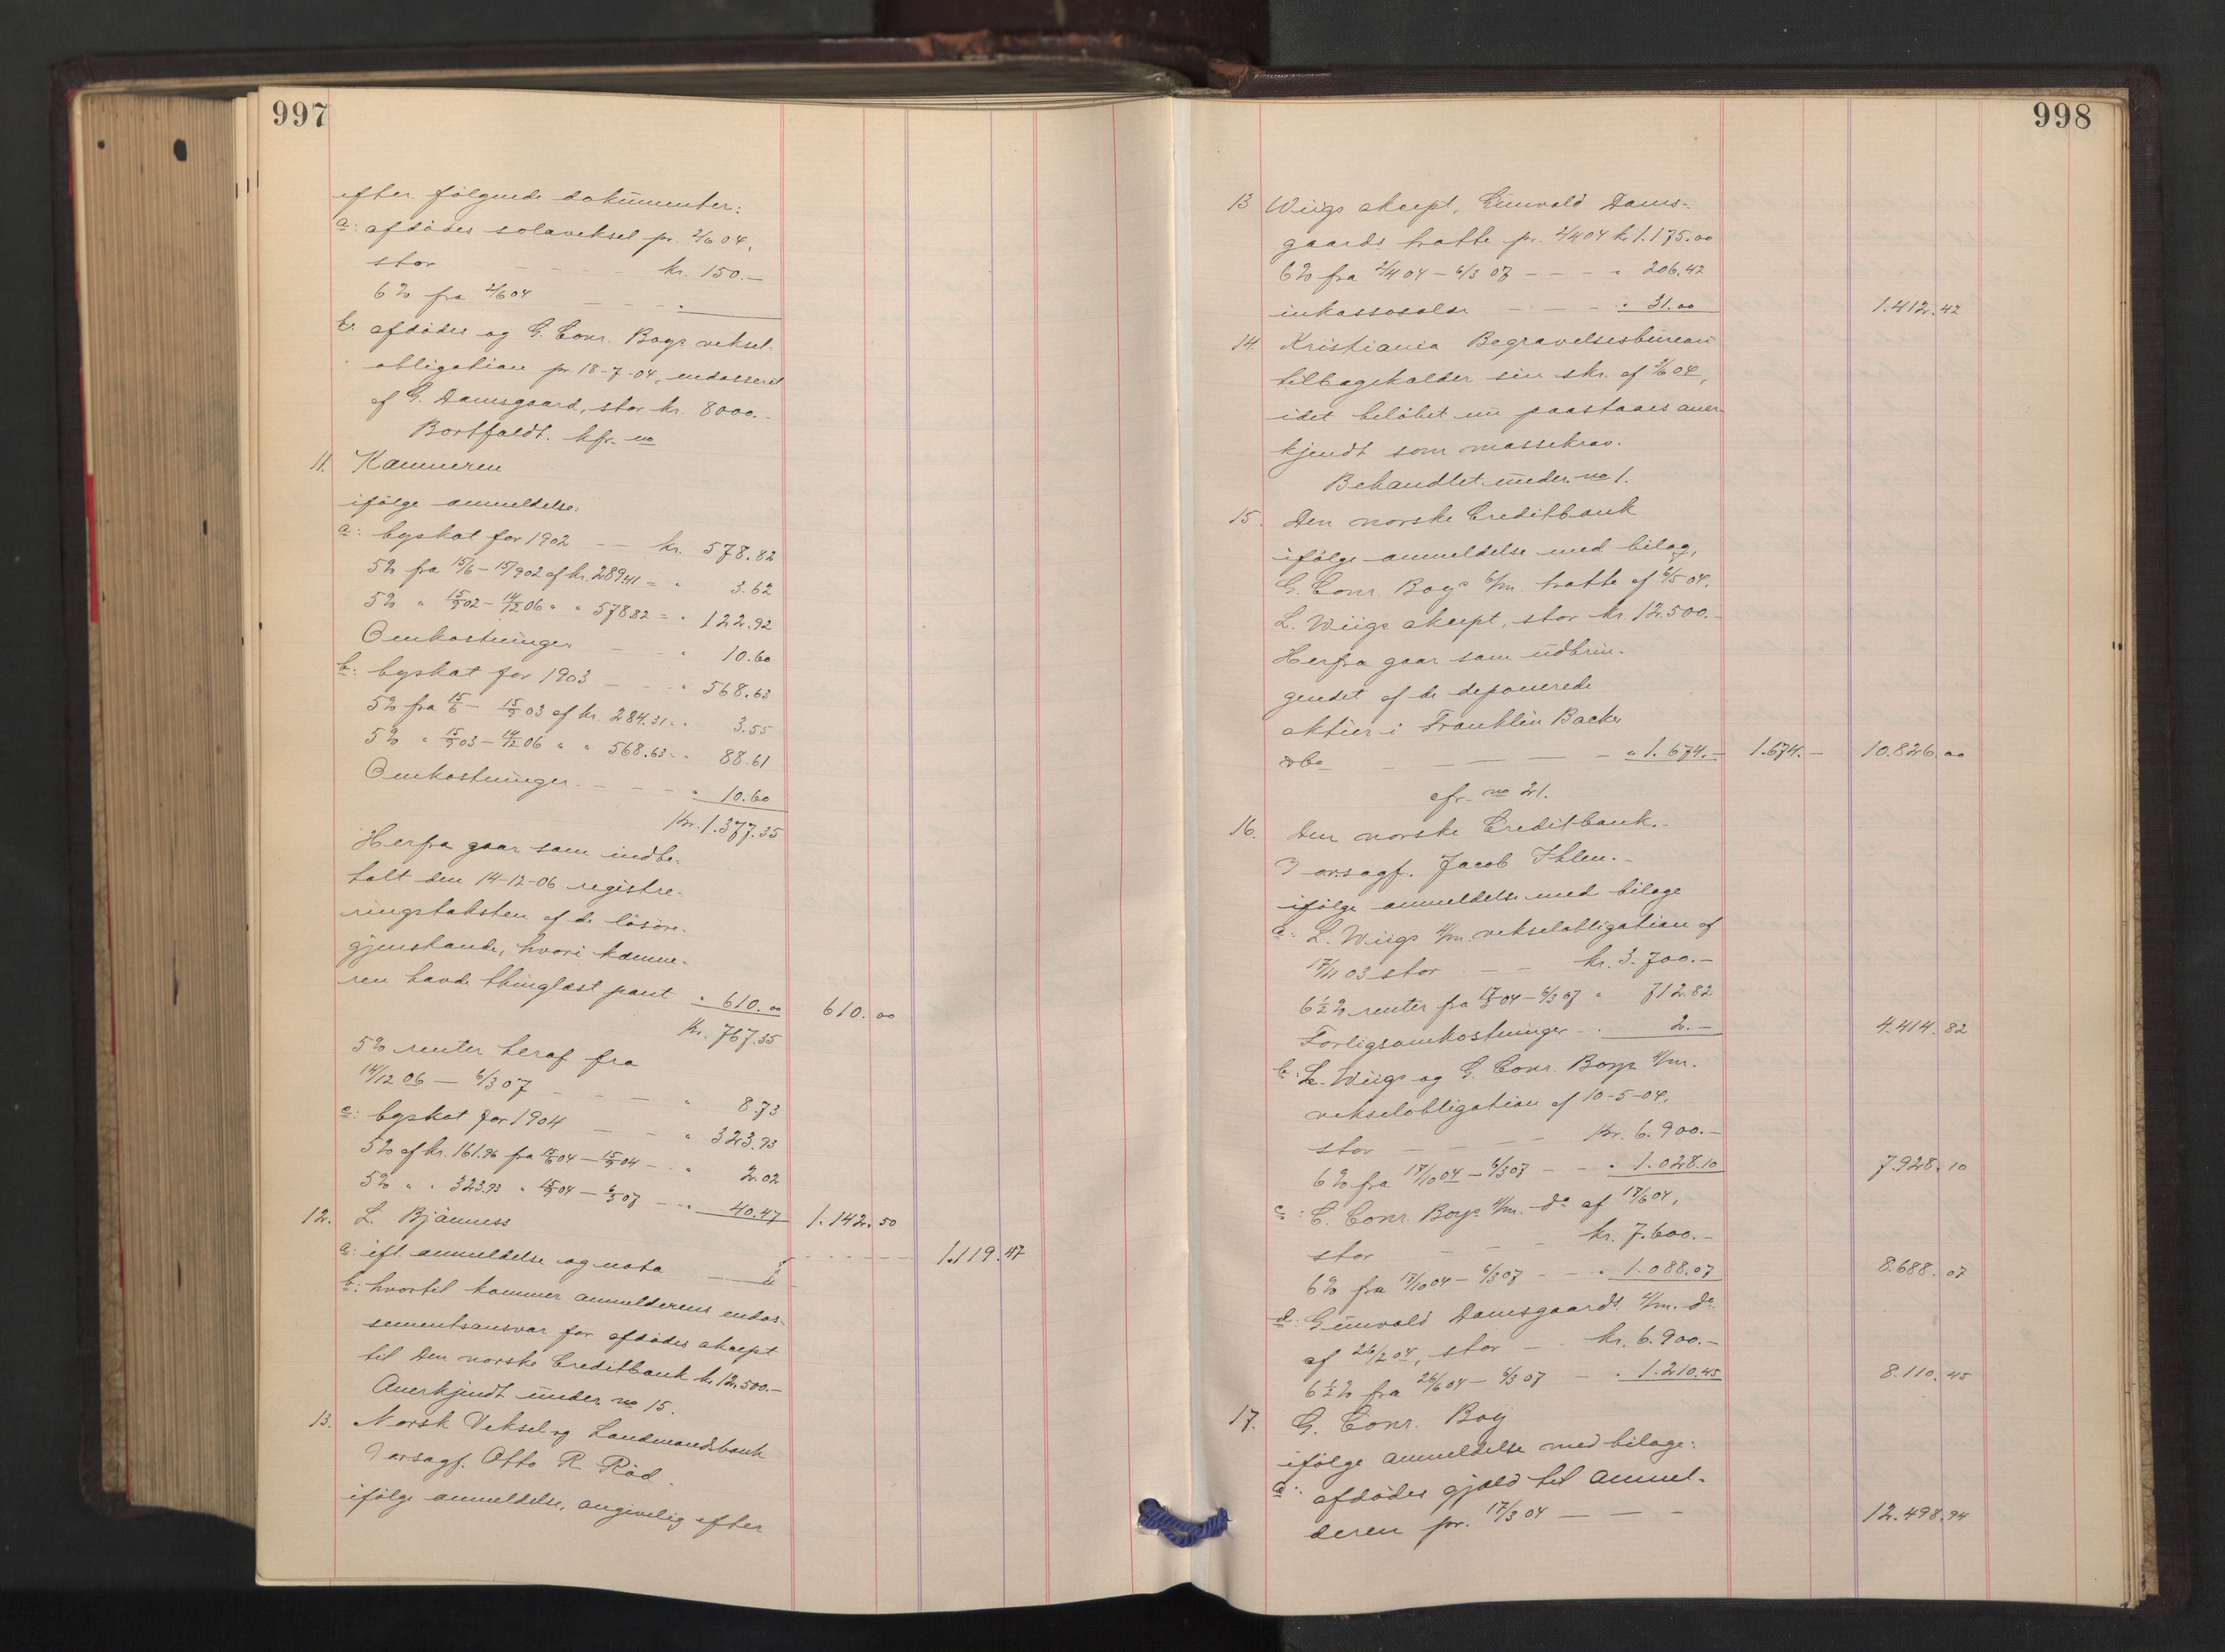 997
efter følgende dokumenter:
a: afdødes solaveksel pr. 2/6 04,
stor — — — kr. 150.—
6% fra 2/6 04 — — — "
b. afdødes og G. Conr. Boys veksel-
obligation pr 18-7-04, endosseret
af G. Damsgaard, stor kr. 8000.-
Bortfaldt. kfr. no
11. Kæmneren
ifølge anmeldelse:
a: byskat for 1902 — — kr. 578.82
5% fra 15/6 - 15/9 02 af kr. 289.41 = " 3.62
5% " 15/9 02 - 14/12 06 " " 578.82 = " 122.92
Omkostninger — — " 10.60
b: byskat for 1903 — — " 568.63
5% fra 15/6 - 15/9 03 af kr. 284.31 = " 3.55
5% " 15/9 03 - 14/12 06 " " 568.63 = " 88.61
Omkostninger — — — " 10.60
Kr. 1.377.35
Herfra gaar som indbe-
talt den 14-12-06 registre-
ringstaksten af de løsøre-
gjenstande, hvori kæmne-
ren havde thinglæst pant " 610.00 610.00
Kr. 767.35
5% renter heraf fra
14/12 06 — 6/3 07 — — — " 8.73
c: byskat for 1904 — — " 323.93
5% af kr. 161.96 fra 15/6 04 - 15/9 04 — " 2.02
5% " " 323.93 " 15/9 04 - 6/3 07 — " 40.47 1.142.50
12. L. Bjänness
a: ifl. anmeldelse og nota — 1.119.47
b: hvortil kommer anmelderens endos-
sementsansvar for afdødes aksept
til Den norske Creditbank kr. 12.500.—
Anerkjendt under no 15.
13. Norsk Veksel og Landmandsbank
V. orsagf. Otto R. Röd.
ifølge anmeldelse, angivelig efter
998
13 Wiigs aksept, Gunvald Dams-
gaards tratte pr. 2/4 04 kr. 1.175.00
6% fra 2/4 04 — 6/3 07 — — — " 206.42
inkassosalær — — — " 31.00 1.412.42
14. Kristiania Begravelsesbureau
tilbageholder sin skr. af 2/6 04,
idet beløbet nu paastaaes aner-
kjendt som massekrav.
Behandlet under no 1.
15. Den norske Creditbank
ifølge anmeldelse med bilag,
G. Conr. Boys 6/m. tratte af 6/5 04,
L. Wiigs aksept, stor kr. 12.500.-
Herfra gaar som udbrin-
gendet af de deponerede
aktier i Franklin Backe
& Co — — — — " 1.674.— 1.674.— 10.826.00
cfr. no 21.
16. Den norske Creditbank.-
V. orsagf. Jacob Ihlen.-
ifølge anmeldelse med bilage
a: L. Wiigs 4/m. vekselobligation af
17/11 03 stor — — kr. 3.700.—
6½% renter fra 17/3 04 - 6/3 07 " 712.82
Forligsomkostninger — " 2.— 4.414.82
b: L. Wiigs og G. Conr. Boys 4/m.
vekselobligation af 10-5-04,
stor — — — — Kr. 6.900.—
6% fra 17/10 04 - 6/3 07 — — " 1.028.10 7.928.10
c: G. Conr. Boys 4/m. do af 17/6 04,
stor — — — kr. 7.600.—
6% fra 17/10 04 - 6/3 07 — — " 1.088.07 8.688.07
d: Gunvald Damsgaards 4/m. do
af 26/2 04, stor — kr. 6.900.—
6½% fra 26/6 04 - 6/3 07 — " 1.210.45 8.110.45
17. G. Conr. Boy
ifølge anmeldelse med bilage:
a: afdødes gjæld til anmel-
deren pr. 17/3 04 — — — 12.498.94